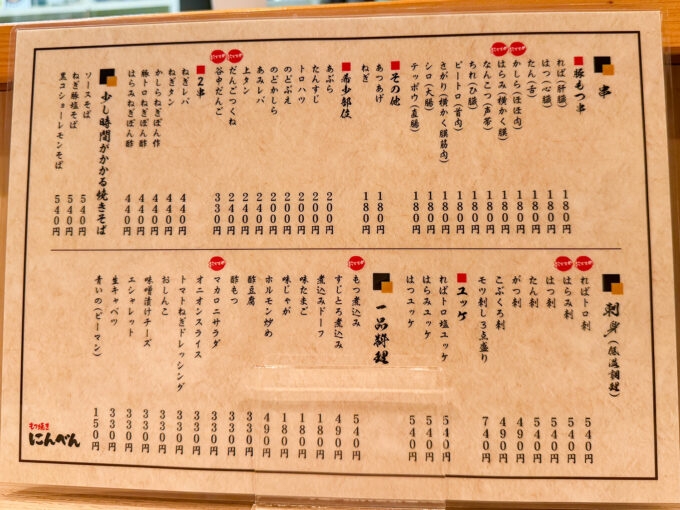 串
豚もつ串
れば(肝臓) 180円
はつ(心臓) 180円
たん(舌) 180円
おすすめ
かしら(ほほ肉) 180円
おすすめ
はらみ(横かく膜) 180円
なんこつ(声帯) 180円
ちれ(ひ臓) 180円
ピートロ(首肉) 180円
さがり(横かく膜筋肉) 180円
シロ(大腸) 180円
テッポウ(直腸) 180円
その他
あつあげ 180円
ねぎ 180円
希少部位
あぶら 200円
たんすじ 200円
トロハツ 200円
のどぶえ 200円
のどかしら 200円
あみレバ 240円
上タン 240円
おすすめ
だんごつくね 240円
おすすめ
谷中だんご 330円
2串
ねぎレバ 440円
ねぎタン 440円
かしらねぎぽん酢 440円
豚トロねぎぽん酢 440円
はらみねぎぽん酢 440円
少し時間がかかる焼きそば
ソースそば 540円
ねぎ豚塩そば 540円
黒コショーレモンそば 540円
刺身(低温調理)
おすすめ
ればトロ刺 540円
おすすめ
はらみ刺 540円
はつ刺 540円
たん刺 540円
がつ刺 490円
こぶくろ刺 490円
モツ刺し3点盛り 740円
ユッケ
ればトロ塩ユッケ 540円
はらみユッケ 540円
はつユッケ 540円
一品料理
おすすめ
もつ煮込み 540円
すじとろ煮込み 490円
煮込みドーフ 180円
味たまご 180円
味じゃが 180円
ホルモン炒め 490円
酢豆腐 330円
酢もつ 330円
おすすめ
マカロニサラダ 330円
オニオンスライス 330円
トマトねぎドレッシング 330円
おしんこ 330円
味噌漬けチーズ 330円
エシャレット 330円
生キャベツ 330円
青いの(ピーマン) 150円
もつ焼き
にんべん